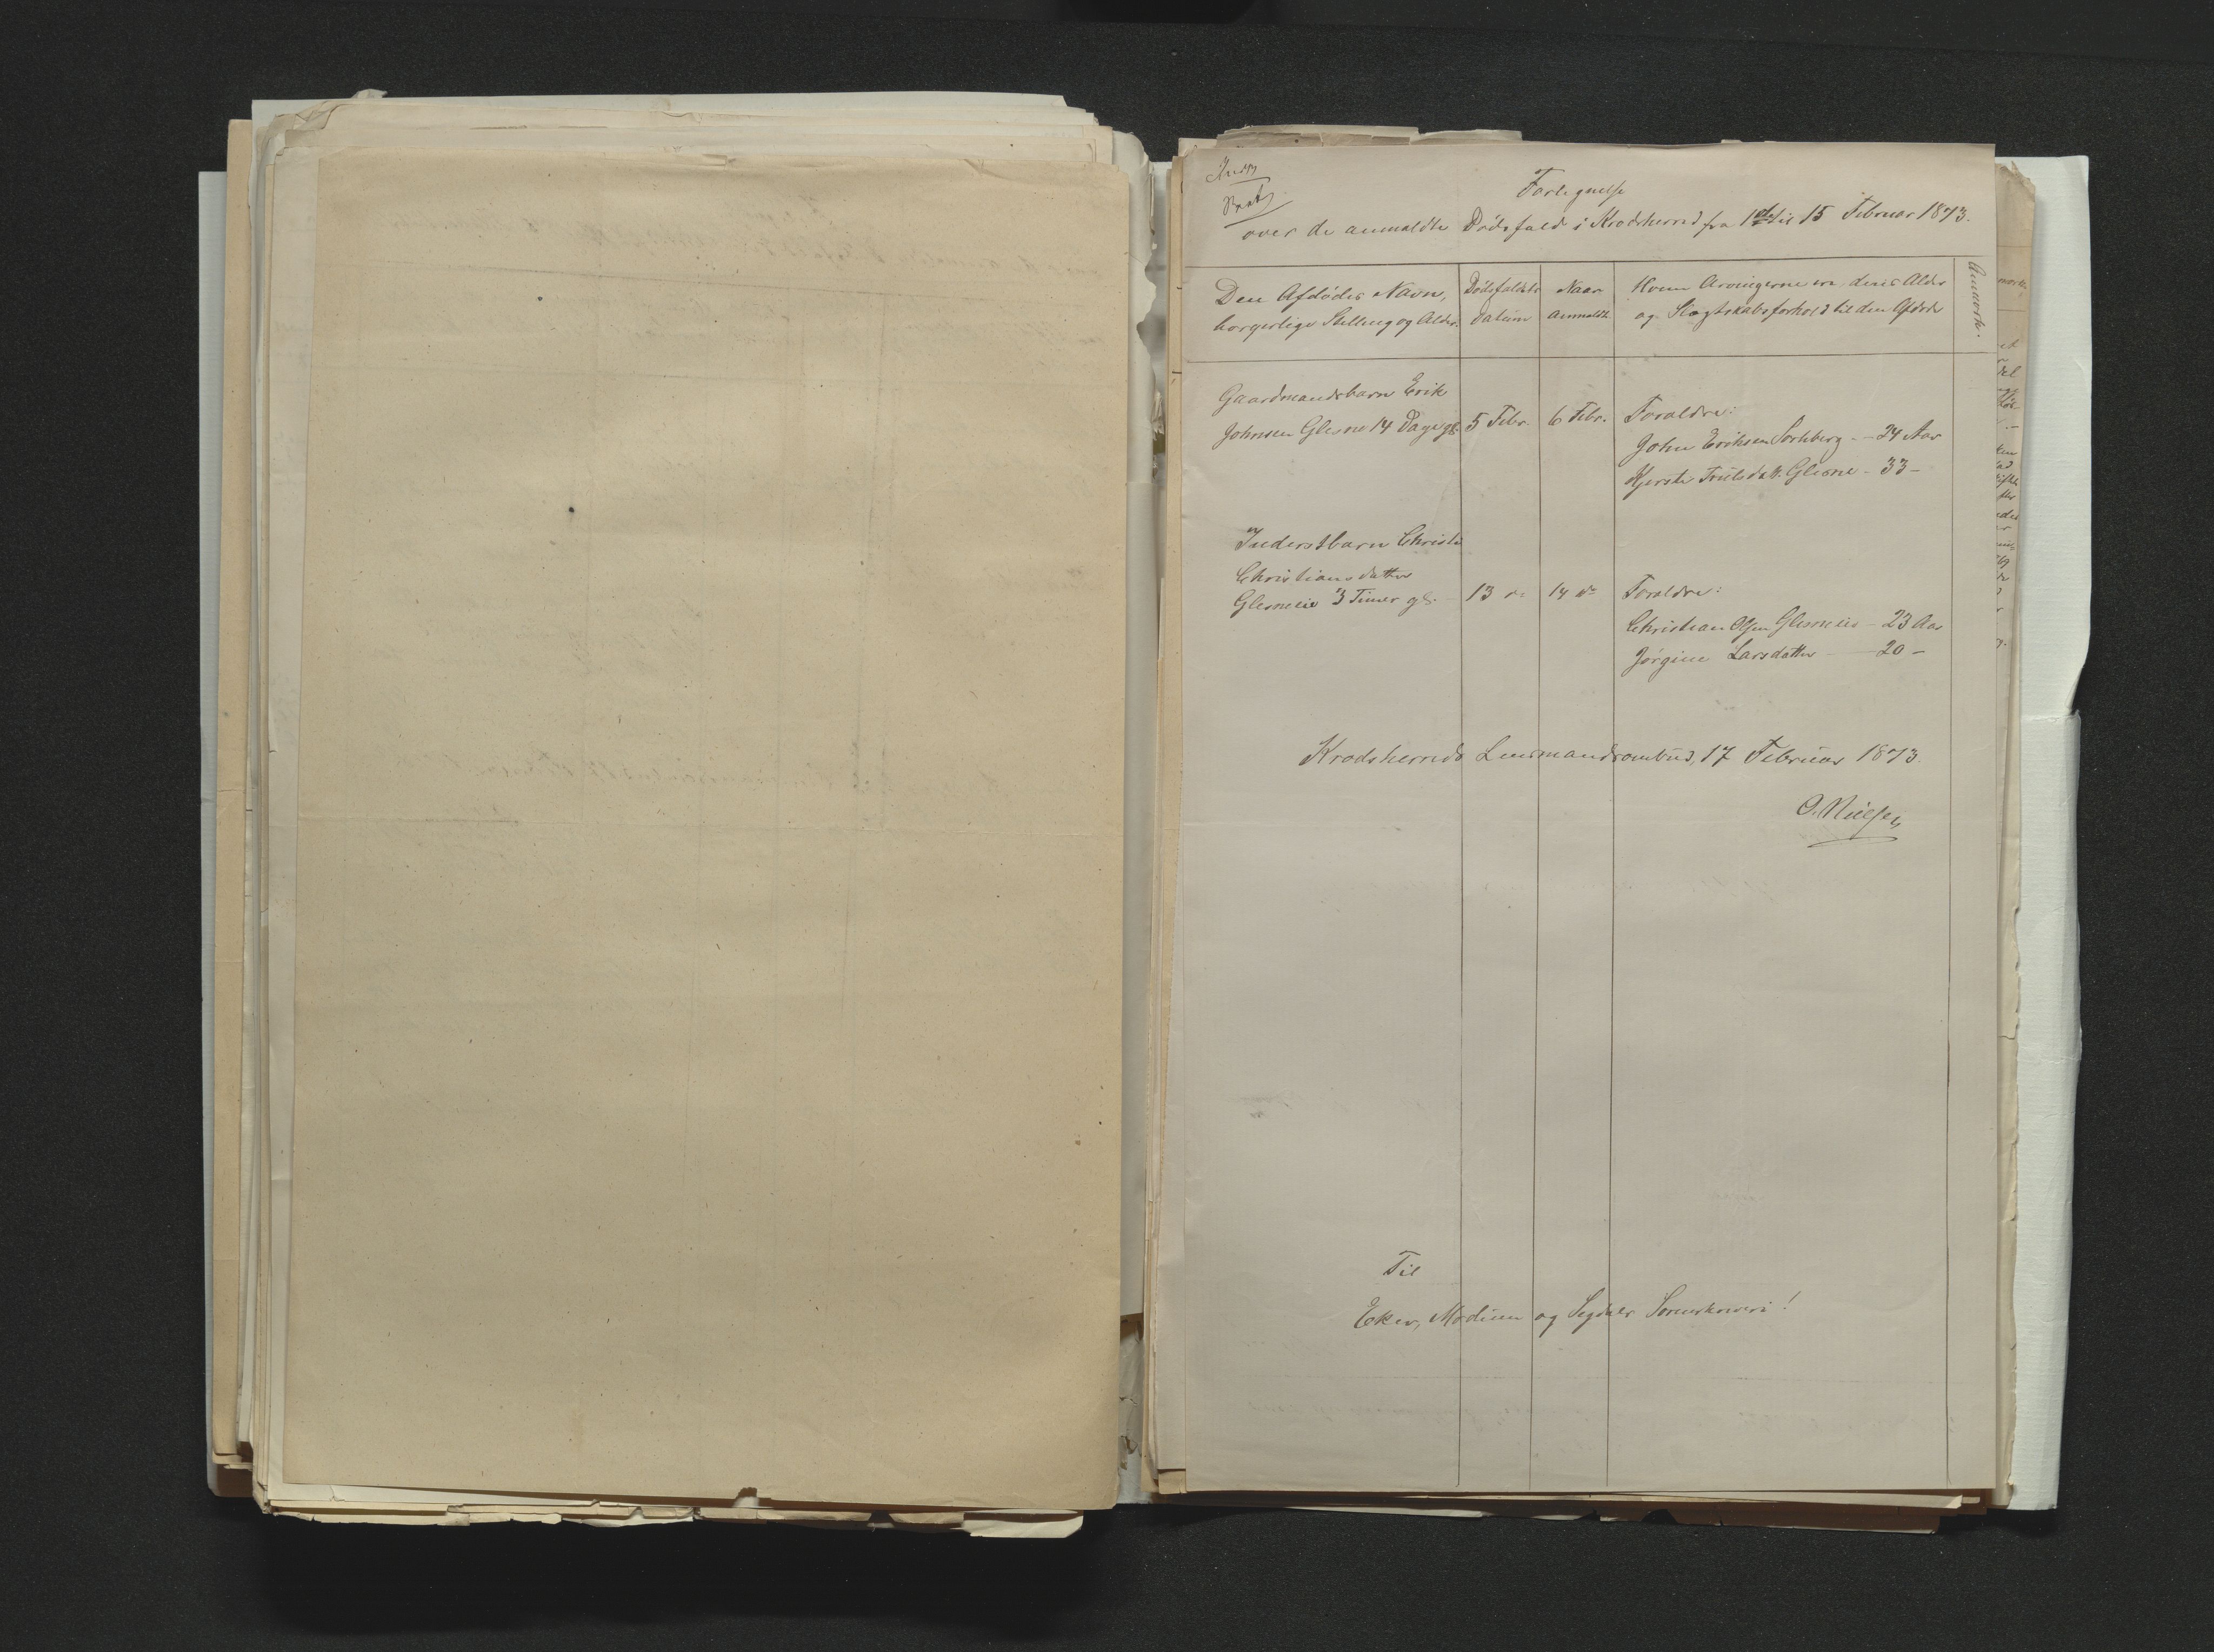 Fortegnelse
over de anmeldte Dødsfald i Krodsherred fra 1ste til 15 Februar 1873.
Den Afdødes Navn,
borgerlige Stilling og Alder.
Dødsfaldets
Datum
Naar
anmeldt
Hvem Arvingerne ere, deres Alder
og Slægtskabsforhold til den Afdøde
Anmærk.
Gaardmandsbarn Erik
Johnsen Glesne 14 Dage gl.
5 Febr.
6 Febr.
Forældre:
John Eriksen - 24 Aar
Kjersti Trulsdatt. Glesne - 33 -
Inderstbarn Christi
Christiansdatter
Glesneie 3 Timer gl.
13 do
14 do
Forældre:
Christian Olsen Glesneie - 23 Aar
Jørgine Larsdatter - 20 -
Krodsherreds Lensmandsombud, 17 Februar 1873.
O. Nielsen
Til
Eker, Modum og Sigdals Sorenskriveri!